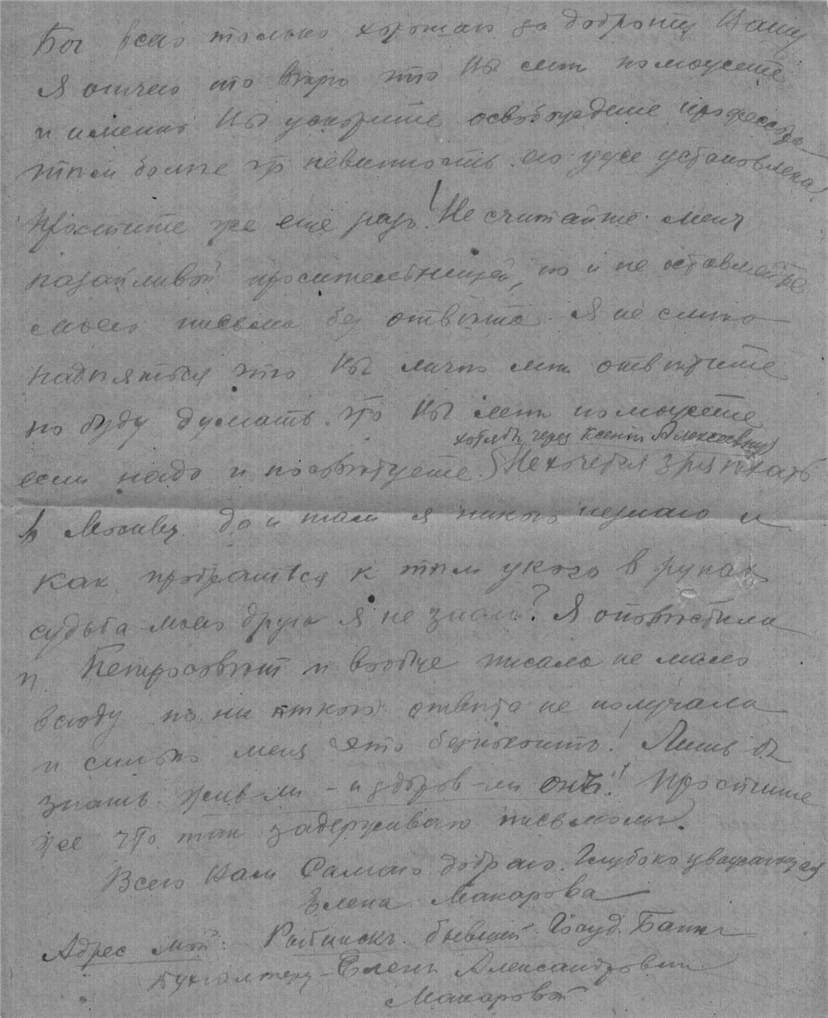 Бог всего только хорошаго за доброту Вашу
Я отчего то верю что Вы мне поможете
и именно Вы ускорите освобождение профессора
тем более что невинность его уже установлена.
Простите же еще разъ! Не считайте меня
назойливой просительницей, но и не оставляйте
моего письма без ответа. Я не смею
надеяться что Вы лично мне ответите
но буду думать что Вы мне поможете
хотя бы через Ксению Алексеевну
если надо и посоветуете. Не хочется зря ехать
в Москву да и там я никого незнаю и
как пробраться к тем у кого в руках
судьба моего друга я не знаю? Я оповестила
и и вообще писала не мало
всюду но ни откого ответа не получала
и сильно меня это безпокоить! Лишь бы
знать жив-ли – и здоров-ли онъ! Простите
же что так задерживаю письмомъ.
Всего Вам Самаго добраго. Глубоко уважающая
Елена Макарова
Адрес мой: Рыбинскъ. бывший Госуд. Банкъ
бухгалтеру – Елене Александровне
Макаровой